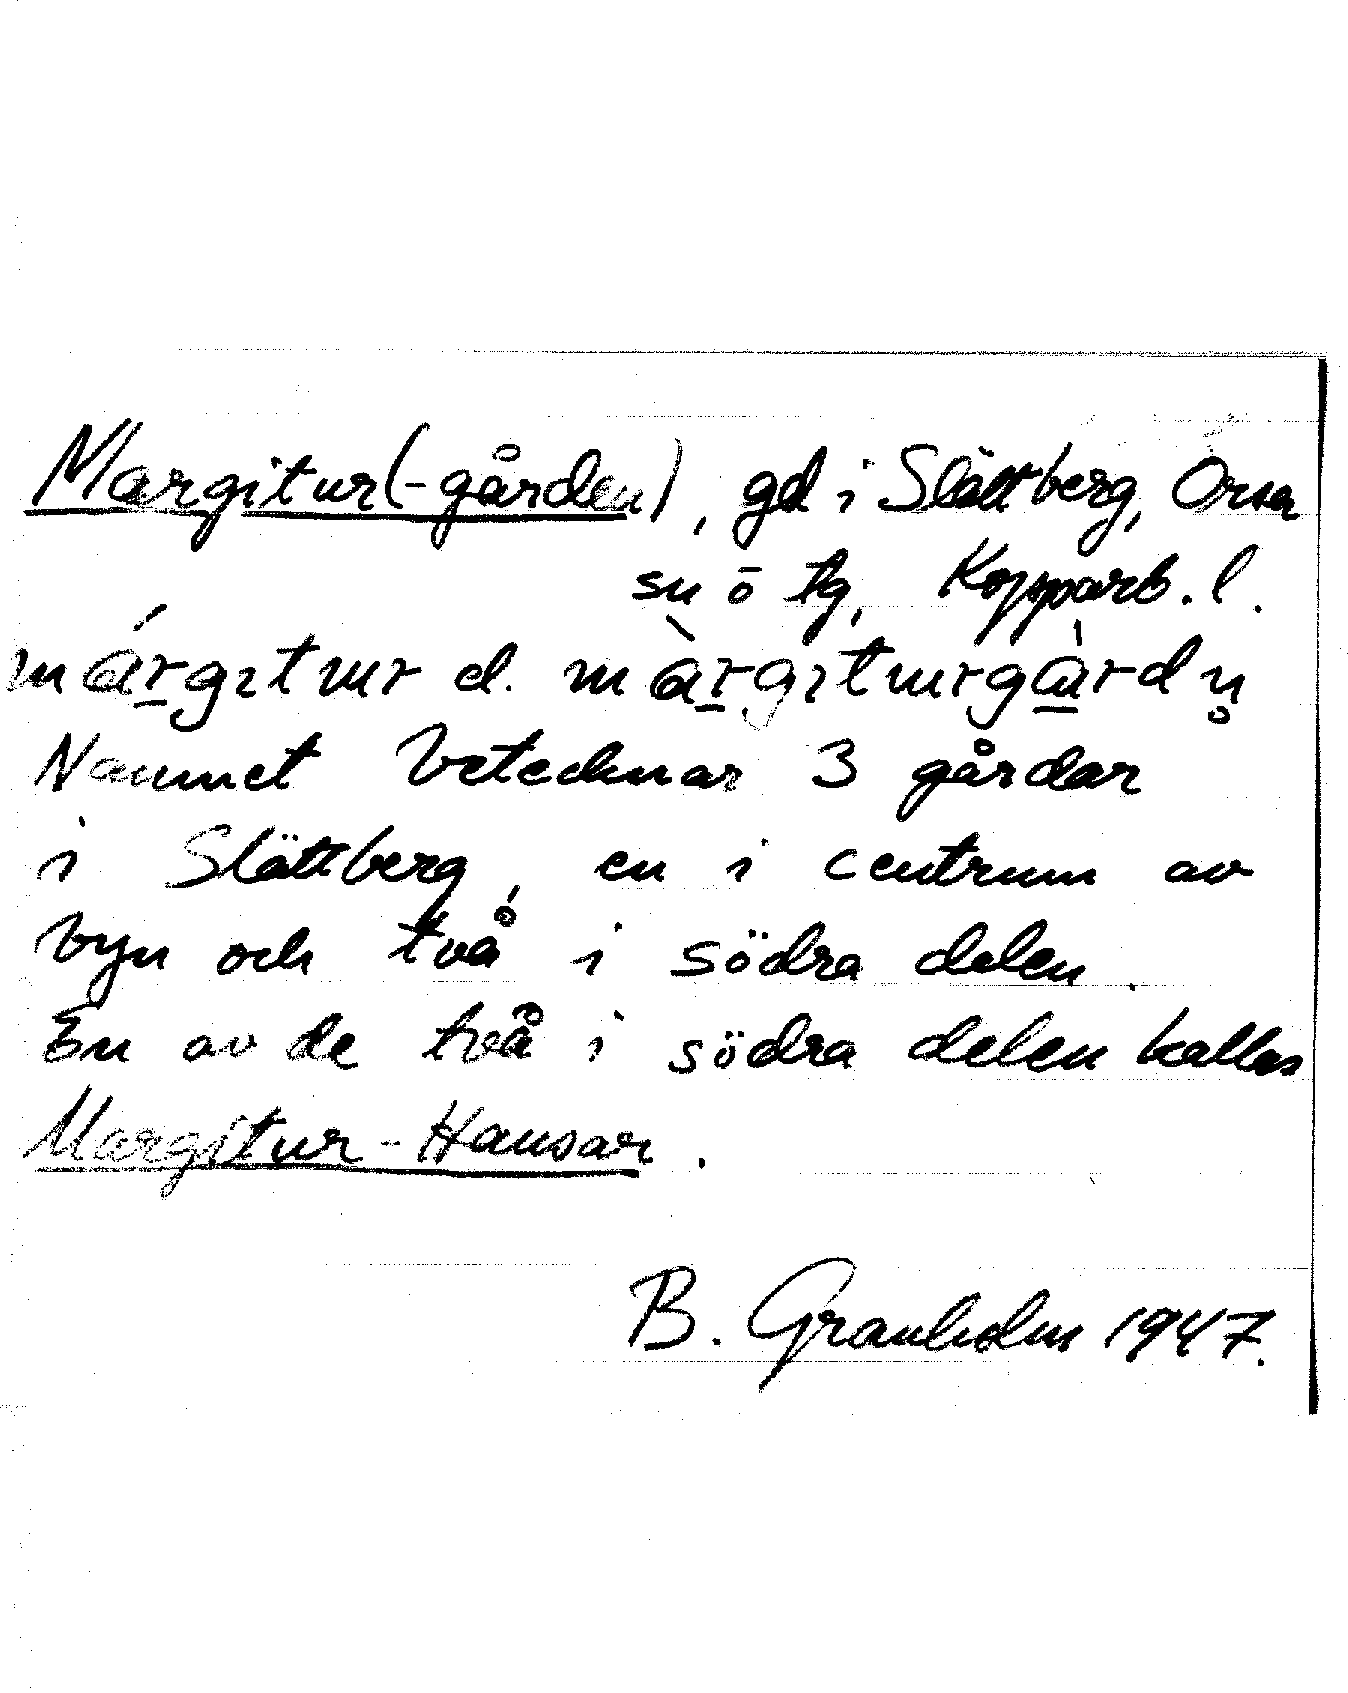 Margitur(-gården), gd i Slättberg, Orsa
sn o tg, Kopparb. l.
márgıtɯr el. màrgıtɯrgàrdn̥
Namnet betecknar 3 gårdar
i Slättberg, en i centrum av
byn och två i södra delen.
En av de två i södra delen kallas
Margitur-Hansar.
B. Granholm 1947.